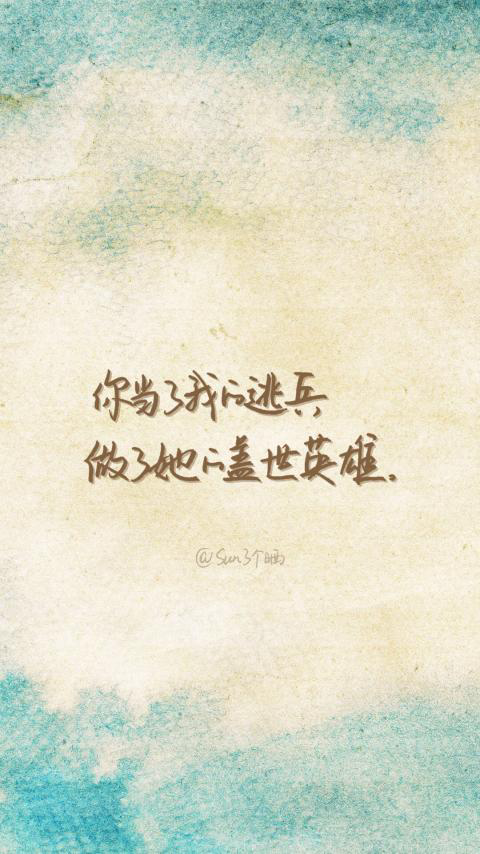 你当了我的逃兵
做了她的盖世英雄.
@Sun3个晒